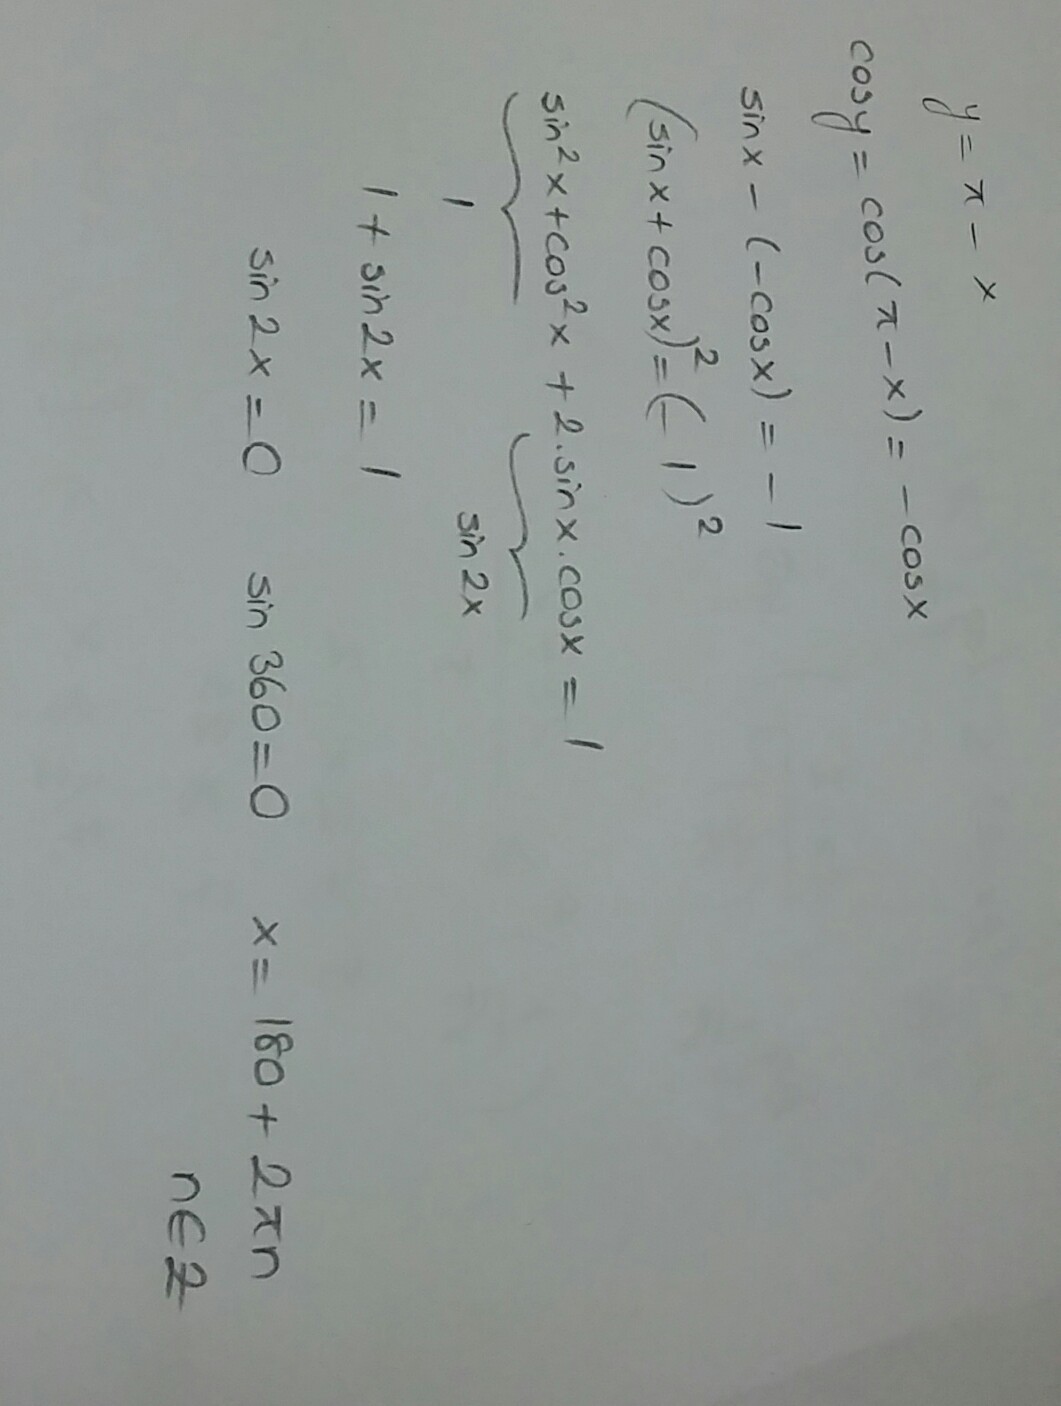 y = π - x
cosy = cos(π-x) = -cosx
sinx - (-cosx) = -1
(sinx + cosx)² = (-1)²
sin²x + cos²x + 2.sinx.cosx = 1
1 sin2x
1 + sin2x = 1
sin2x = 0 sin360=0 x = 180 + 2πn
n∈Z